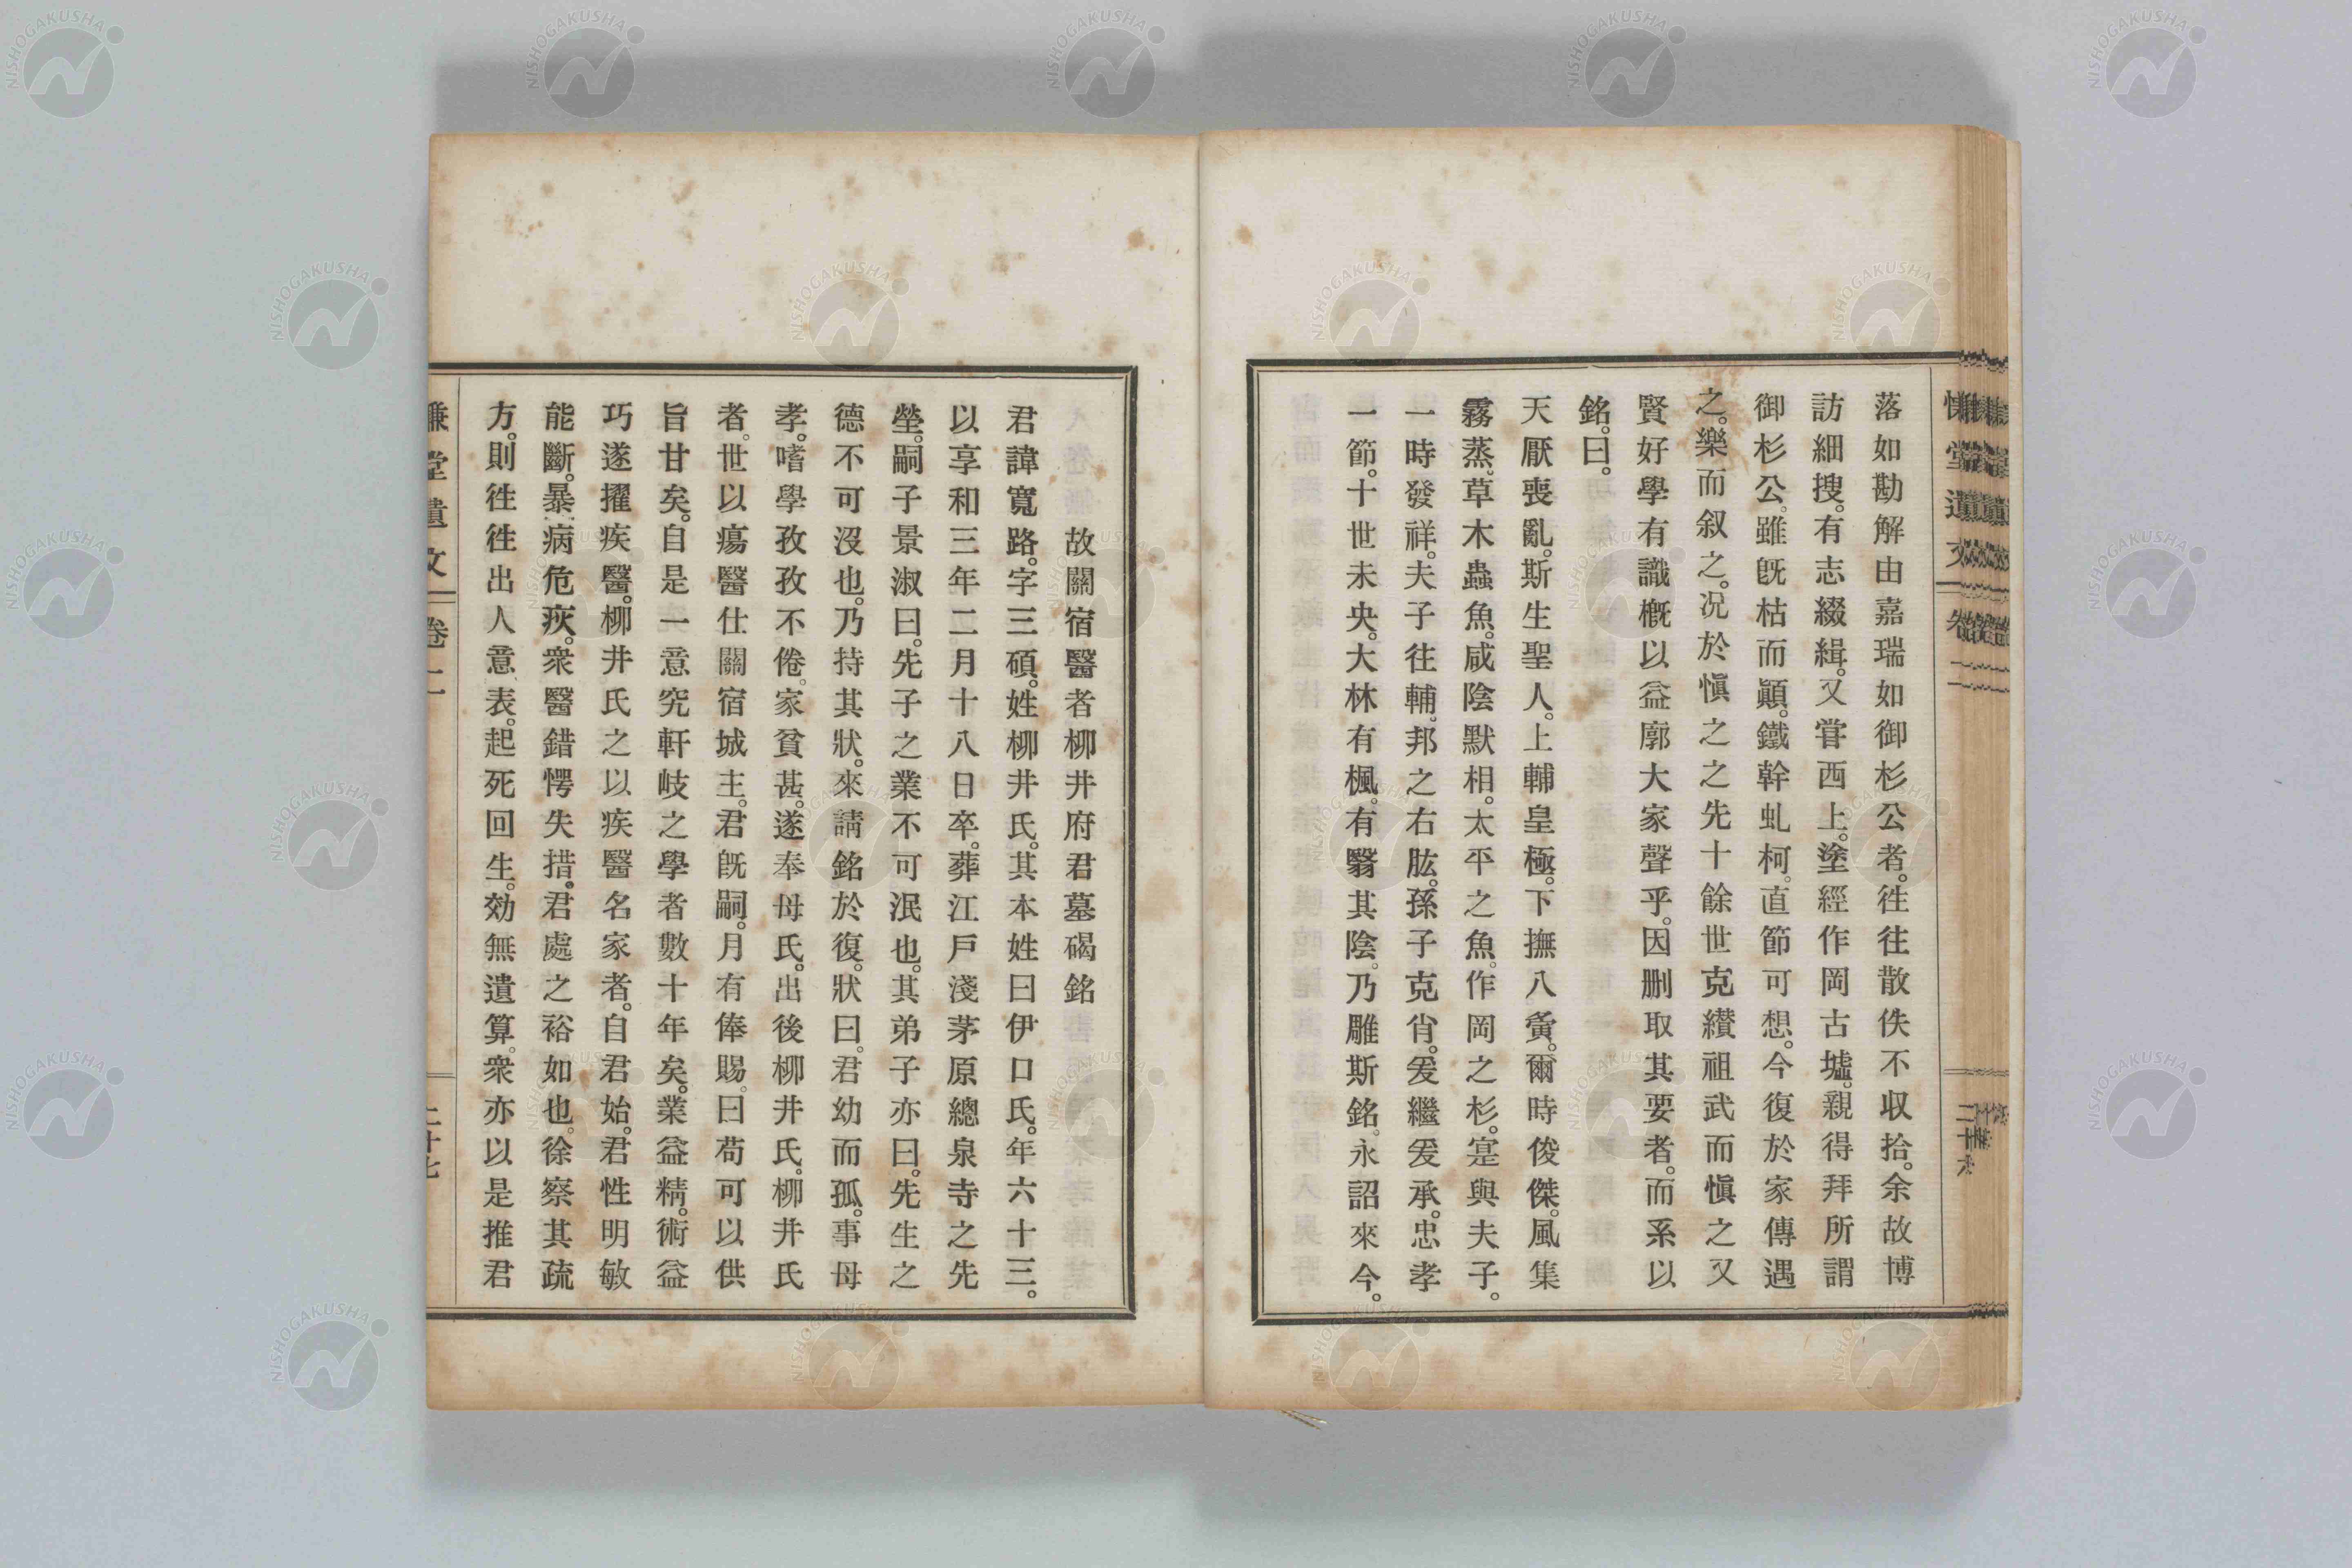 落如勘解由嘉瑞如御杉公者。徃徃散佚不収拾。余故博
訪細搜。有志綴緝。又甞西上。塗經作岡古墟。親得拜所謂
御杉公。雖旣枯而顚。鐵幹虬柯。直節可想。今復於家傳遇
之。樂而叙之。况於愼之之先十餘世克纉祖武而愼之又
賢好學有識槪以益廓大家聲乎。因删取其要者。而系以
銘。曰。
天厭喪亂。斯生聖人。上輔皇極。下撫八夤。爾時俊傑。風集
霧蒸。草木蟲魚。咸陰默相。太平之魚。作岡之杉。寔與夫子。
一時發祥。夫子往輔。邦之右肱。孫子克肖。爰繼爰承。忠孝
一節。十世未央。大林有楓。有翳其陰。乃雕斯銘。永詔來今。
故關宿醫者柳井府君墓碣銘
君諱寬路。字三碩。姓柳井氏。其本姓曰伊口氏。年六十三。
以享和三年二月十八日卒。葬江戶淺茅原總泉寺之先
塋。嗣子景淑曰。先子之業不可泯也。其弟子亦曰。先生之
德不可沒也。乃持其狀。來請銘於復。狀曰。君幼而孤。事母
孝。嗜學孜孜不倦。家貧甚。遂奉母氏。出後柳井氏。柳井氏
者。世以瘍醫仕關宿城主。君旣嗣。月有俸賜。曰苟可以供
旨甘矣。自是一意究軒岐之學者數十年矣。業益精。術益
巧遂擢疾醫。柳井氏之以疾醫名家者。自君始。君性明敏
能斷。暴病危疢。衆醫錯愕失措。君處之裕如也。徐察其疏
方。則徃徃出人意表。起死回生。効無遺算。衆亦以是推君
慊堂遺文
卷二
二十七
NISHOGAKUSHA